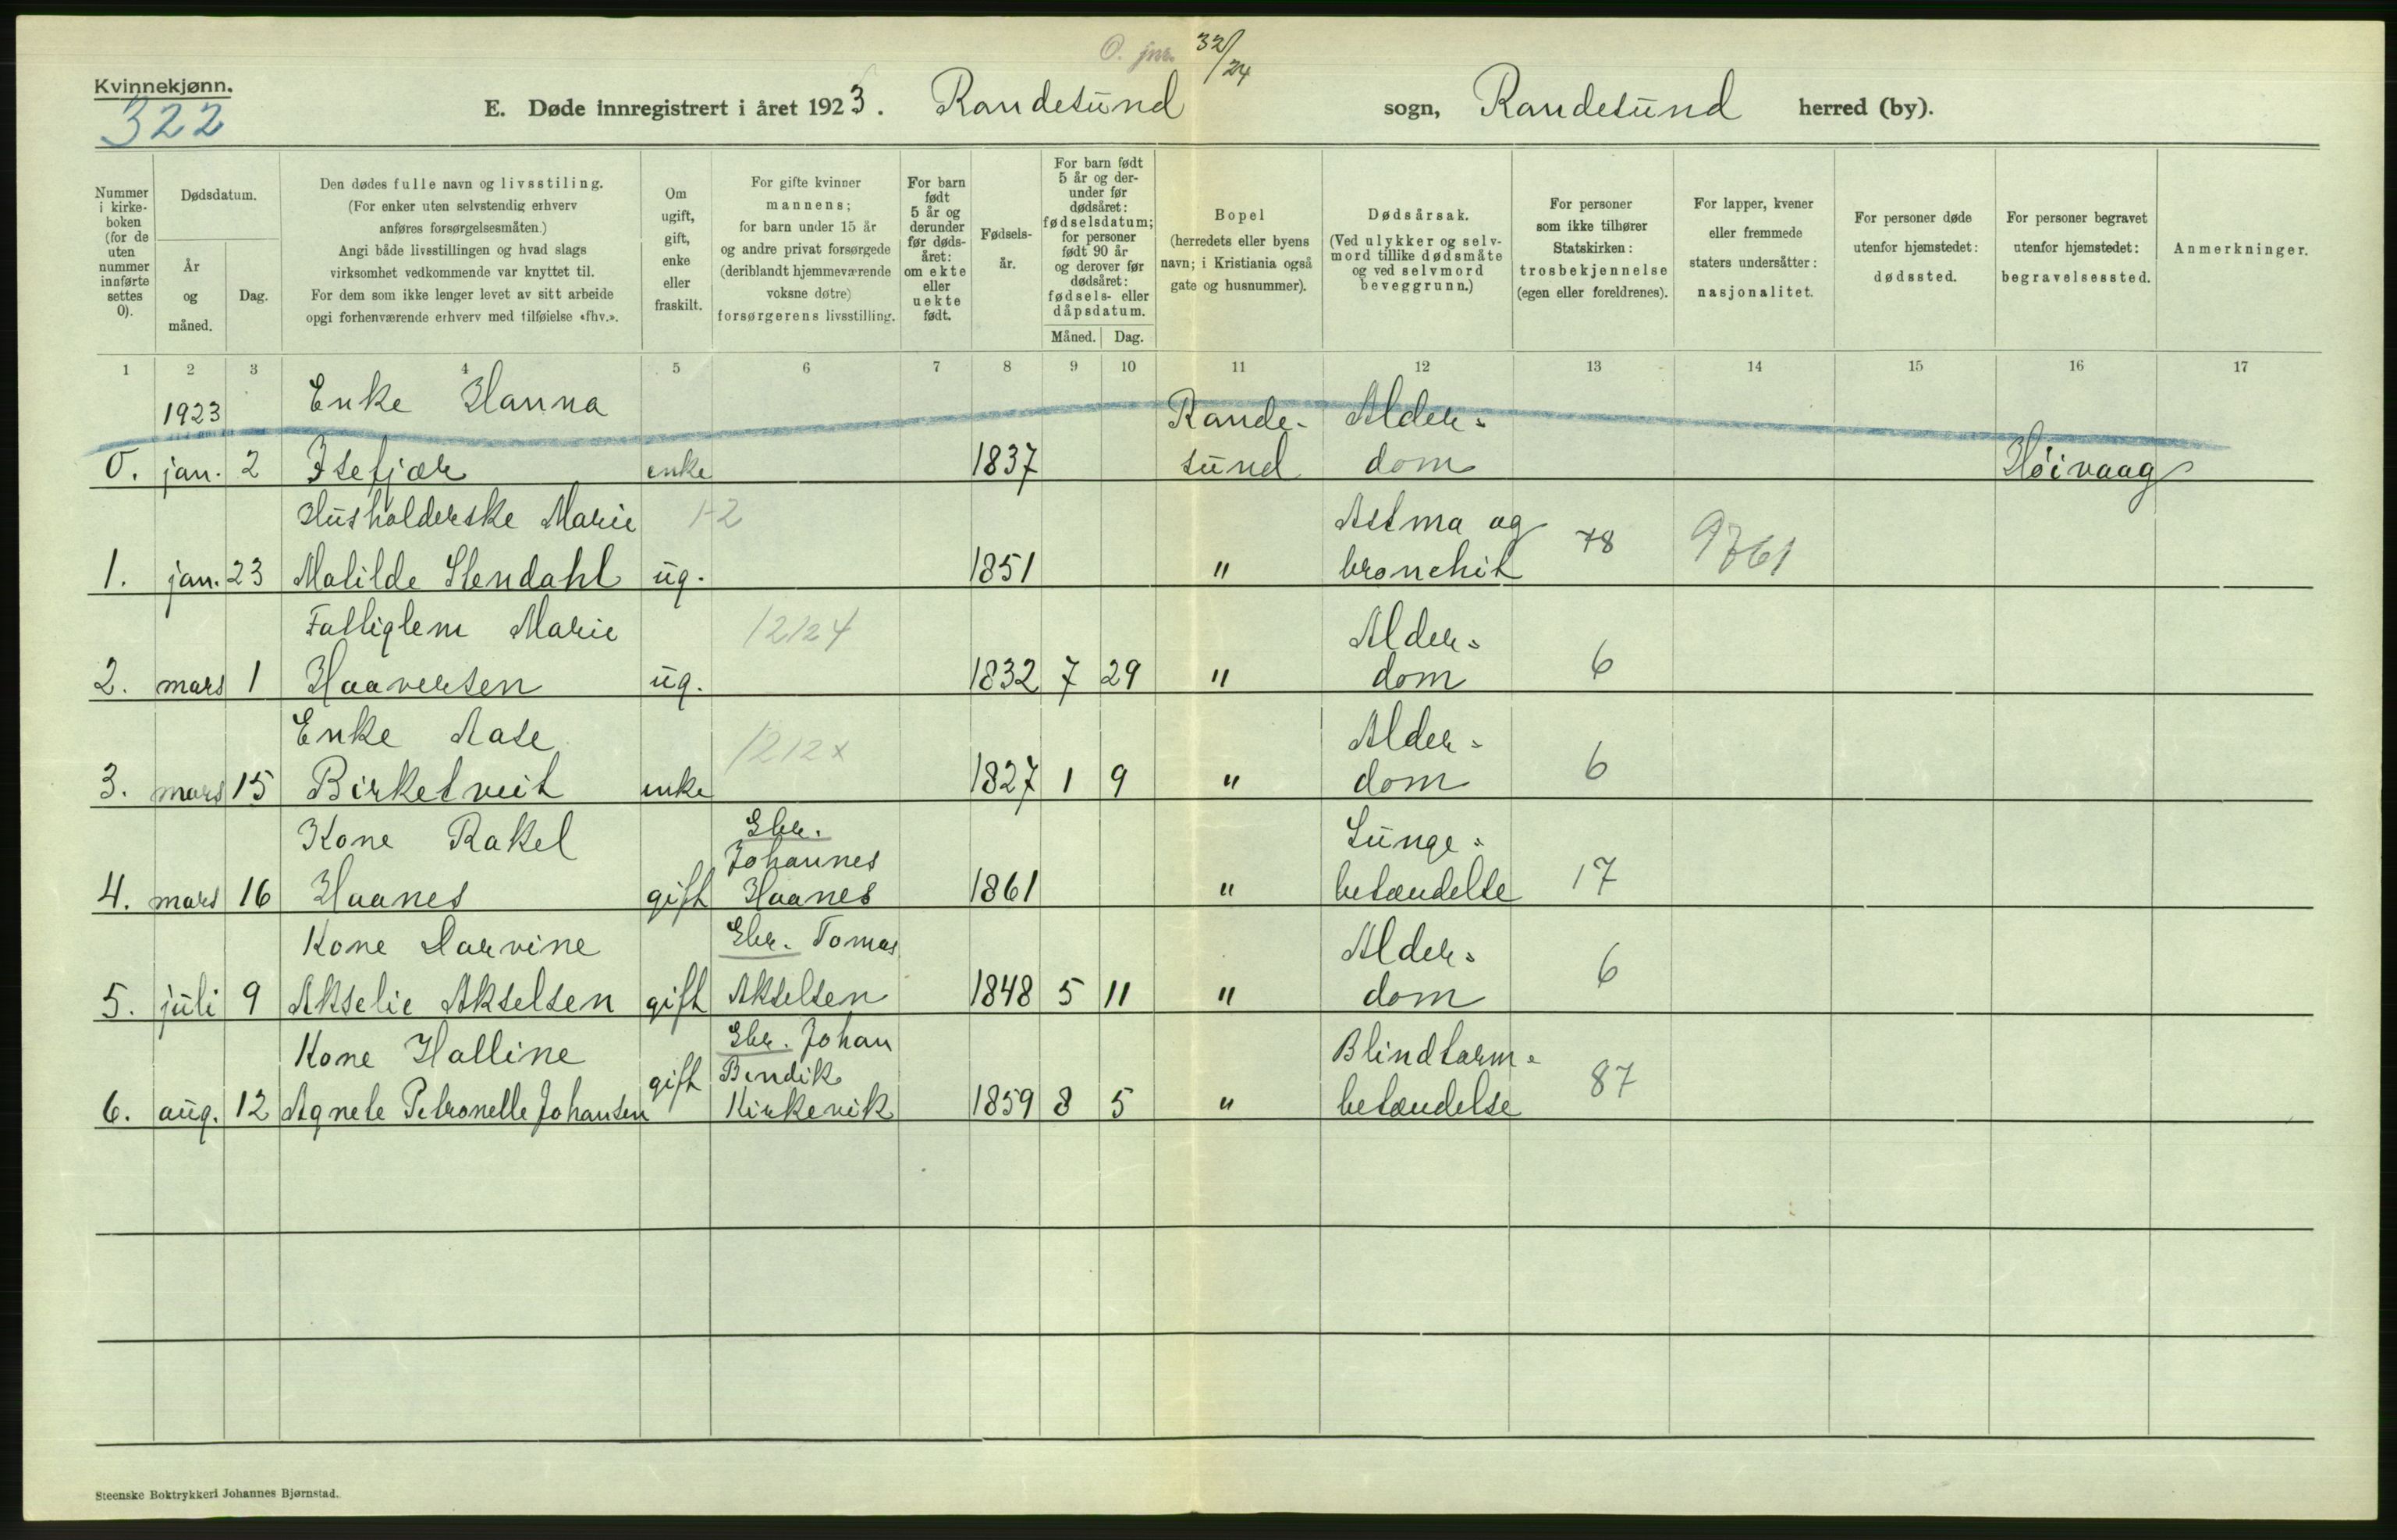 32/24
Kvinnekjønn.
322
E. Døde innregistrert i året 1923. Randesund sogn, Randesund herred (by).
Nummer i kirke-boken (for de uten nummer innførte settes 0).
Dødsdatum.
År og måned.
Dag.
Den dødes fulle navn og livsstiling.
(For enker uten selvstendig erhverv
anføres forsørgelsesmåten.)
Angi både livsstillingen og hvad slags
virksomhet vedkommende var knyttet til.
For dem som ikke lenger levet av sitt arbeide
opgi forhenværende erhverv med tilføielse «fhv.».
Om ugift, gift, enke eller fraskilt.
For gifte kvinner
mannens;
for barn under 15 år
og andre privat forsørgede
(deriblandt hjemmeværende
voksne døtre)
forsørgerens livsstilling.
For barn født 5 år og derunder før døds-året: om ekte eller uekte født.
Fødsels-år.
For barn født
5 år og der-
under før
dødsåret:
fødselsdatum;
for personer
født 90 år
og derover før
dødsåret:
fødsels- eller
dåpsdatum.
Måned. Dag.
Bopel
(herredets eller byens
navn; i Kristiania også
gate og husnummer).
Dødsårsak.
(Ved ulykker og selv-
mord tillike dødsmåte
og ved selvmord
beveggrunn.)
For personer
som ikke tilhører
Statskirken:
trosbekjennelse
(egen eller foreldrenes).
For lapper, kvener
eller fremmede
staters undersåtter:
nasjonalitet.
For personer døde
utenfor hjemstedet:
dødssted.
For personer begravet
utenfor hjemstedet:
begravelsessted.
Anmerkninger.
1 2 3 4 5 6 7 8 9 10 11 12 13 14 15 16 17
1923 Enke Hanna Rande- Alder-
0. jan. 2 Isefjær enke 1837 sund dom Høivaag
Husholderske Marie 1-2 Astma og 78 9761
1. jan. 23 Matilde Stendahl ug. 1851 " bronchit
Fattiglem Marie 12124 Alder-
2. mars 1 Haaversen ug. 1832 7 29 " dom 6
Enke Aase 1212x Alder-
3. mars 15 Birketveit enke 1827 1 9 " dom 6
Kone Rakel Gbr. Johannes Lunge-
4. mars 16 Haanes gift Haanes 1861 " betændelse 17
Kone Darvine Gbr. Tomas Alder-
5. juli 9 Akselie Akselsen gift Akselsen 1848 5 11 " dom 6
Kone Halline Gbr. Johan Bendik Blindtarm-
6. aug. 12 Agnete Petronelle Johansen gift Kirkevik 1859 8 5 " betændelse 87
Steenske Boktrykkeri Johannes Bjørnstad.